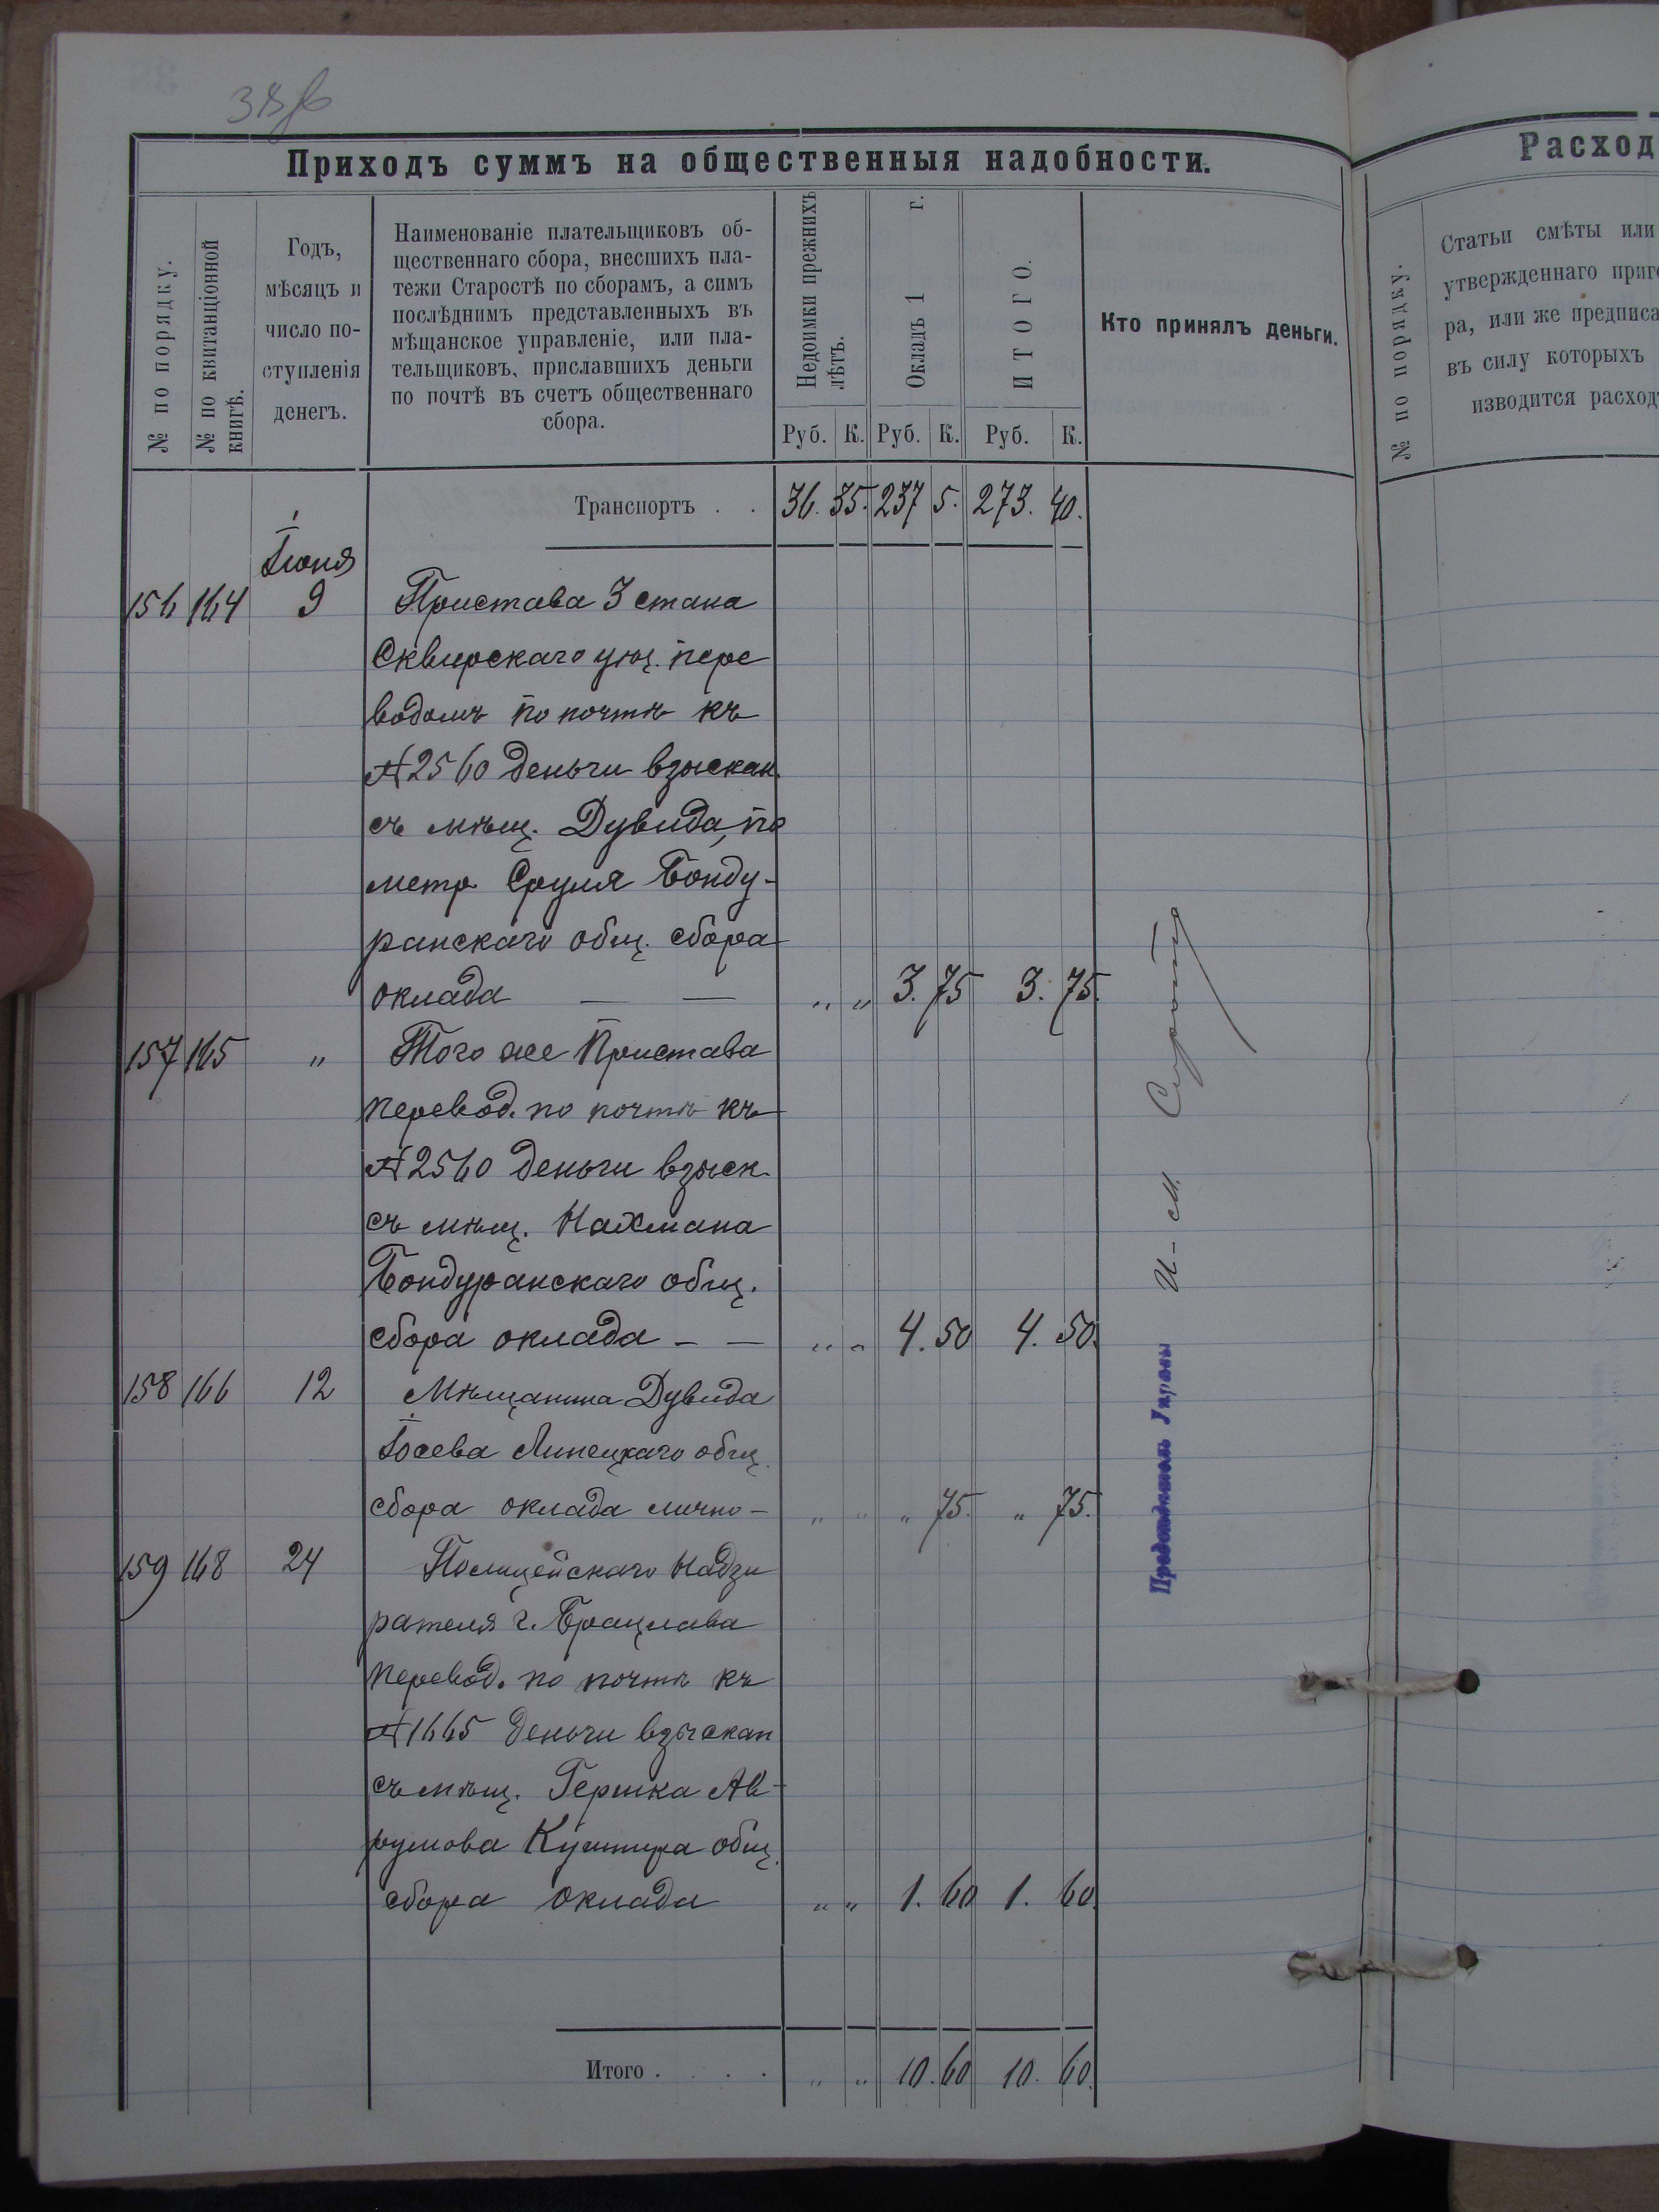 Приходъ суммъ на общественныя надобности.
№ по порядку.
№ по квитанціонной
книгѣ.
Годъ,
мѣсяцъ и
число по-
ступленія
денегъ.
Наименованіе плательщиковъ об-
щественнаго сбора, внесшихъ пла-
тежи Старостѣ по сборамъ, а симъ
послѣднимъ представленныхъ въ
мѣщанское управленіе, или пла-
тельщиковъ, приславшихъ деньги
по почтѣ въ счетъ общественнаго
сбора.
Недоимки прежнихъ
лѣтъ.
Окладъ 1 г.
ИТОГО.
Руб. К. Руб. К. Руб. К.
Кто принялъ деньги.
Транспортъ . . 36. 35. 237 5. 273. 40.
Іюня
156 164 9 Пристава 3 стана
Сквирскаго уѣз. пере
водомъ по почтѣ къ
№ 2560 деньги взыскан.
съ мѣщ. Дувида, по
метр. Сруля Бонду-
ранскаго общ. сбора
оклада — — „ „ 3. 75 3. 75.
157 165 „ Того же Пристава
перевод. по почтѣ къ
№ 2560 деньги взыск.
съ мѣщ. Нахмана
Бондуранскаго общ.
сбора оклада — — „ „ 4. 50 4. 50.
158 166 12 Мѣщанина Дувида
Іосева Липецкаго общ.
сбора оклада лично — „ „ „ 75. „ 75.
159 168 24 Полицейскаго Надзи
рателя г. Брацлава
перевод. по почтѣ къ
№ 1665 деньги взыскан
съ мѣщ. Гершка Ав-
румова Кушнира общ.
сбора оклада „ „ 1. 60 1. 60.
Итого . . . . „ „ 10. 60 10. 60.
Предсѣдатель Управы
И - М.
Расход
№ по порядку.
Статьи смѣты или
утвержденнаго приго
ра, или же предписа
въ силу которыхъ
изводится расход